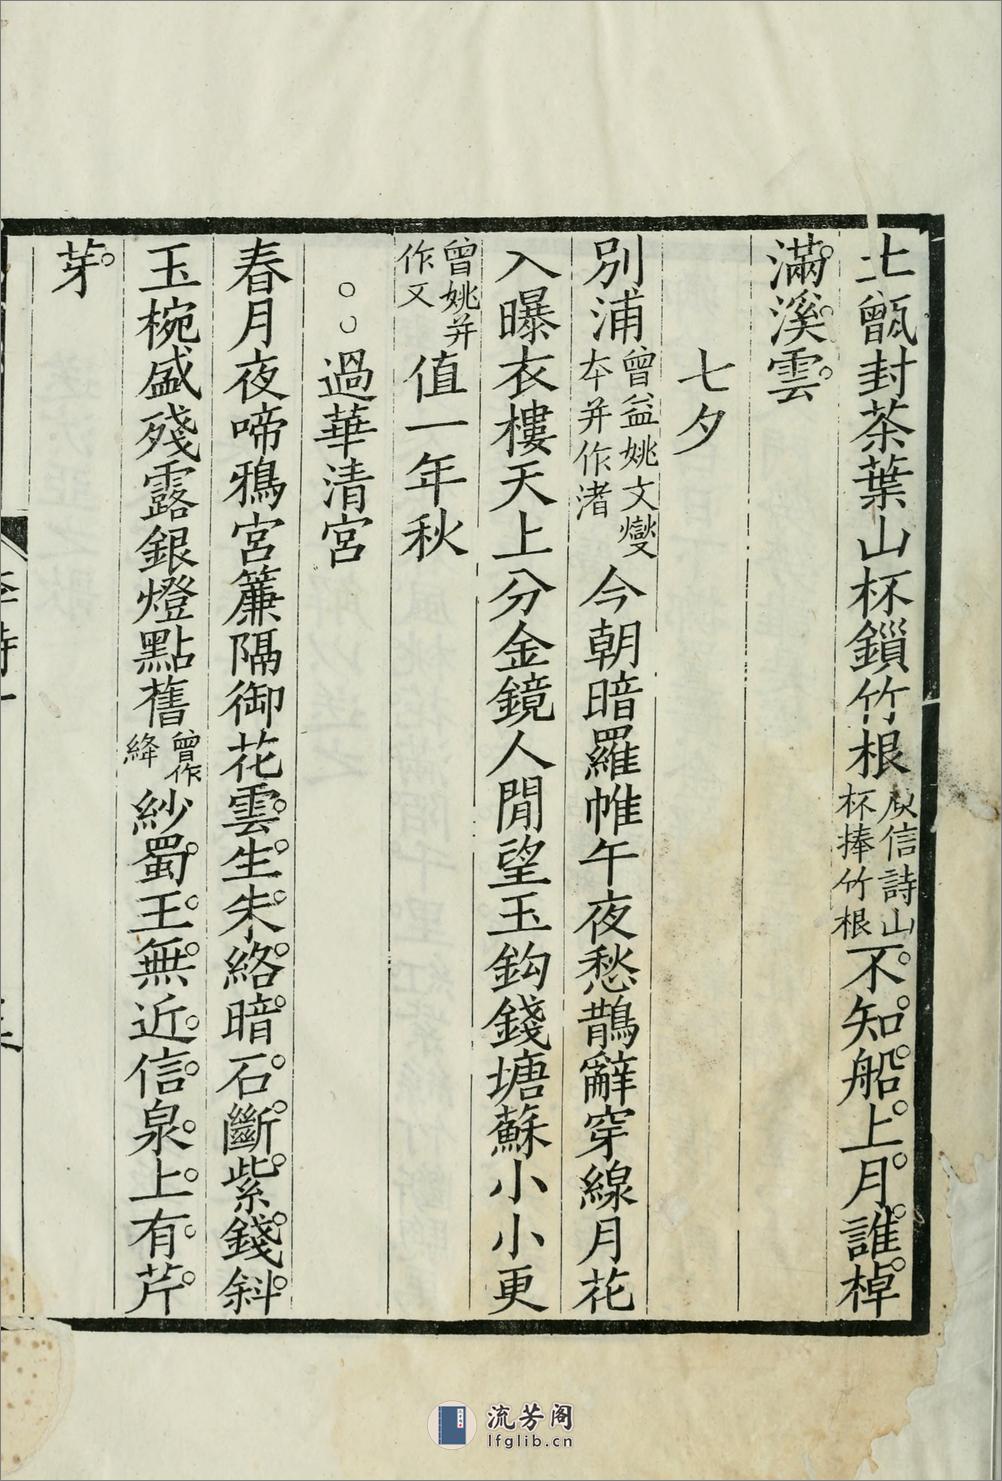 土甑封茶葉山杯鎖竹根庾信詩山杯捧竹根不知船上月誰棹
滿溪雲
七夕
別浦曾益姚文燮本并作渚今朝暗羅帷午夜愁鵲辭穿線月花
入曝衣樓天上分金鏡人閒望玉鈎錢塘蘇小小更
曾姚并作又值一年秋
過華清宮
春月夜啼鴉宮簾隔御花雲生朱絡暗石斷紫錢斜
玉椀盛殘露銀燈點舊曾作絳紗蜀王無近信泉上有芹
芽
流芳阁
lfglib.cn